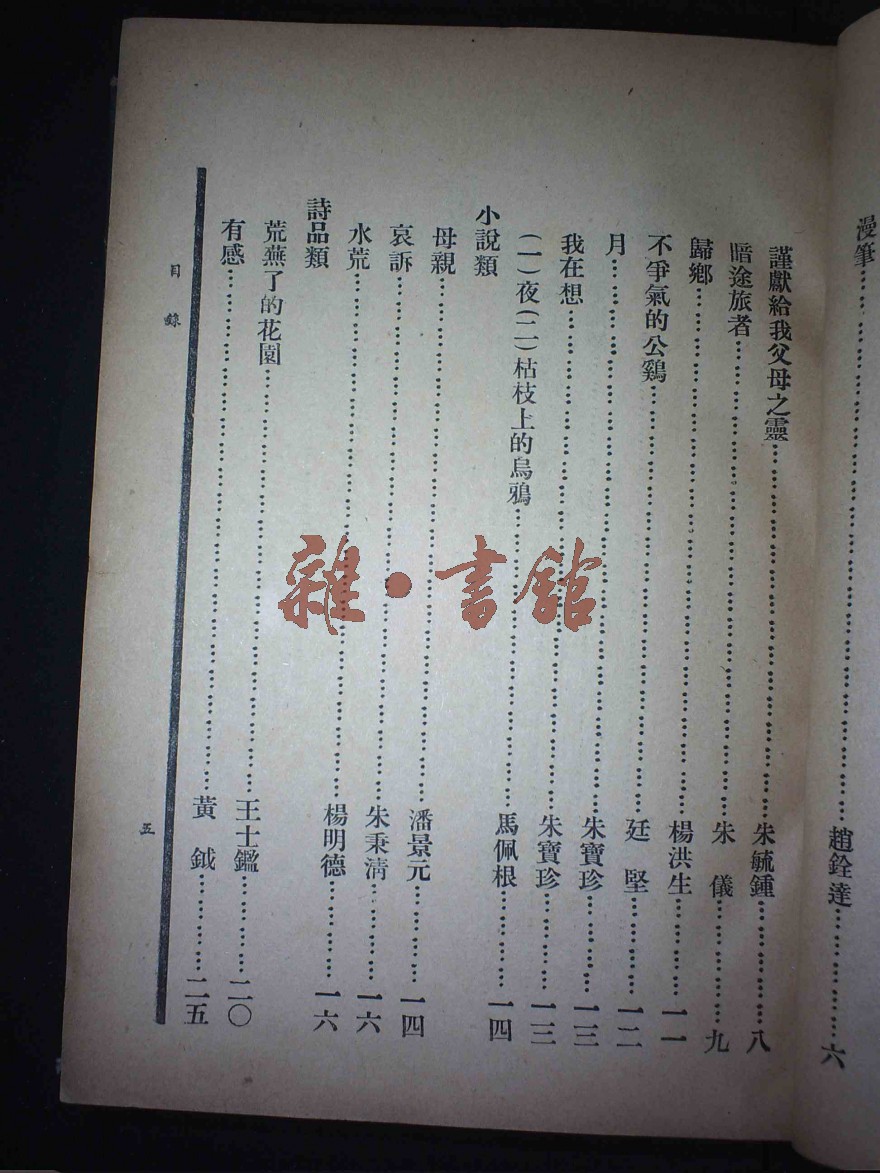 漫筆……………………趙銓達……………六
謹獻給我父母之靈……………………朱毓鍾……………八
暗途旅者……………………朱 儀……………九
歸鄉……………………楊洪生……………一一
不爭氣的公鷄……………………廷 堅……………一二
月……………………朱寶珍……………一三
我在想……………………朱寶珍……………一三
(一)夜(二)枯枝上的烏鴉……………………馬佩根……………一四
小說類
母親……………………潘景元……………一四
哀訴……………………朱秉清……………一六
水荒……………………楊明德……………一六
詩品類
荒蕪了的花園……………………王士鑑……………二〇
有感……………………黃 鉞……………二五
目錄
五
雜・書館